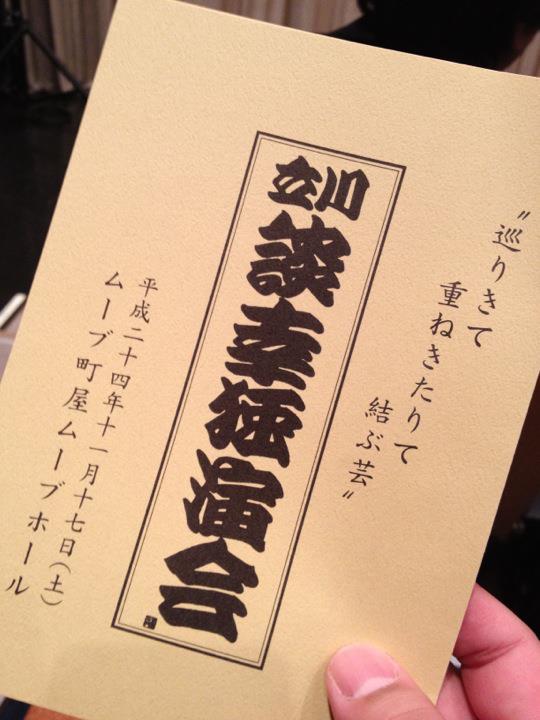 〝巡りきて
重ねきたりて
結ぶ芸〟
立川談幸独演会
平成二十四年十一月十七日(土)
ムーブ町屋ムーブホール